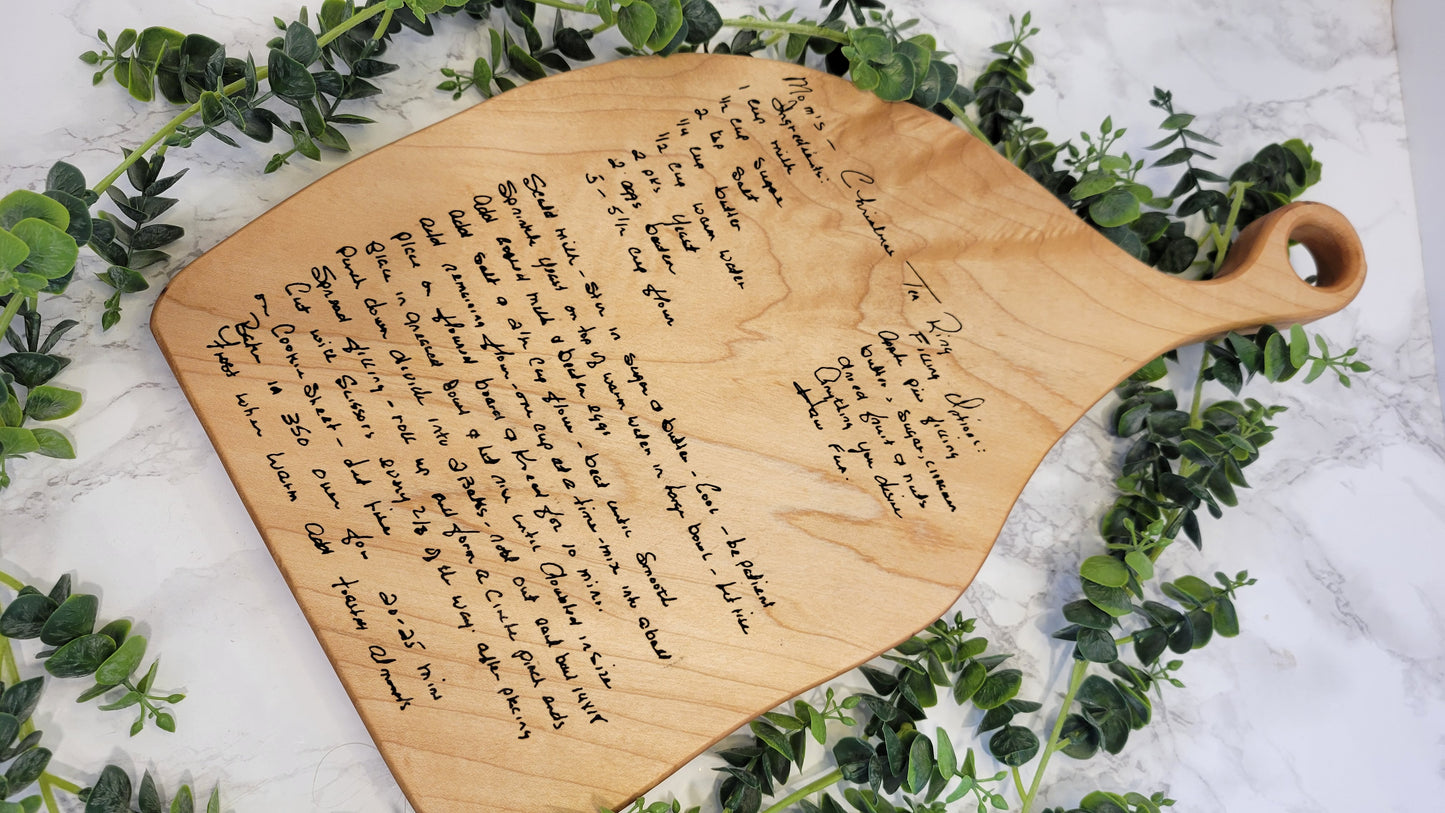 Mom's - Christmas Tea Ring
Ingredients:
1 cup milk
1/2 cup sugar
2 tsp salt
1/4 cup butter
1/2 cup warm water
2 pks yeast
2 eggs beaten
5 - 5 1/2 cup flour
Filling Options:
Apple pie filling
butter, sugar, cinnamon
dried fruit & nuts
Anything you desire
Have Fun.
Scald milk - stir in sugar & butter - Cool - be patient
Sprinkle yeast on top of warm water in large bowl - let rise
Add cooled milk & beaten eggs
Add salt & 2 1/2 cup flour - beat until smooth
Add remaining flour - one cup at a time - mix into a ball
Place on floured board & knead for 10 mins.
Place in greased Bowl & let rise until doubled in size
Punch down divide into 2 Balls - roll out each ball 14x18
Spread filling - roll up and form a circle pinch ends
Cut with Scissors every 2/3 of the way. after placing
on Cookie Sheet - let rise
Bake in 350 oven for 20-25 min
Frost when warm add toasted almonds